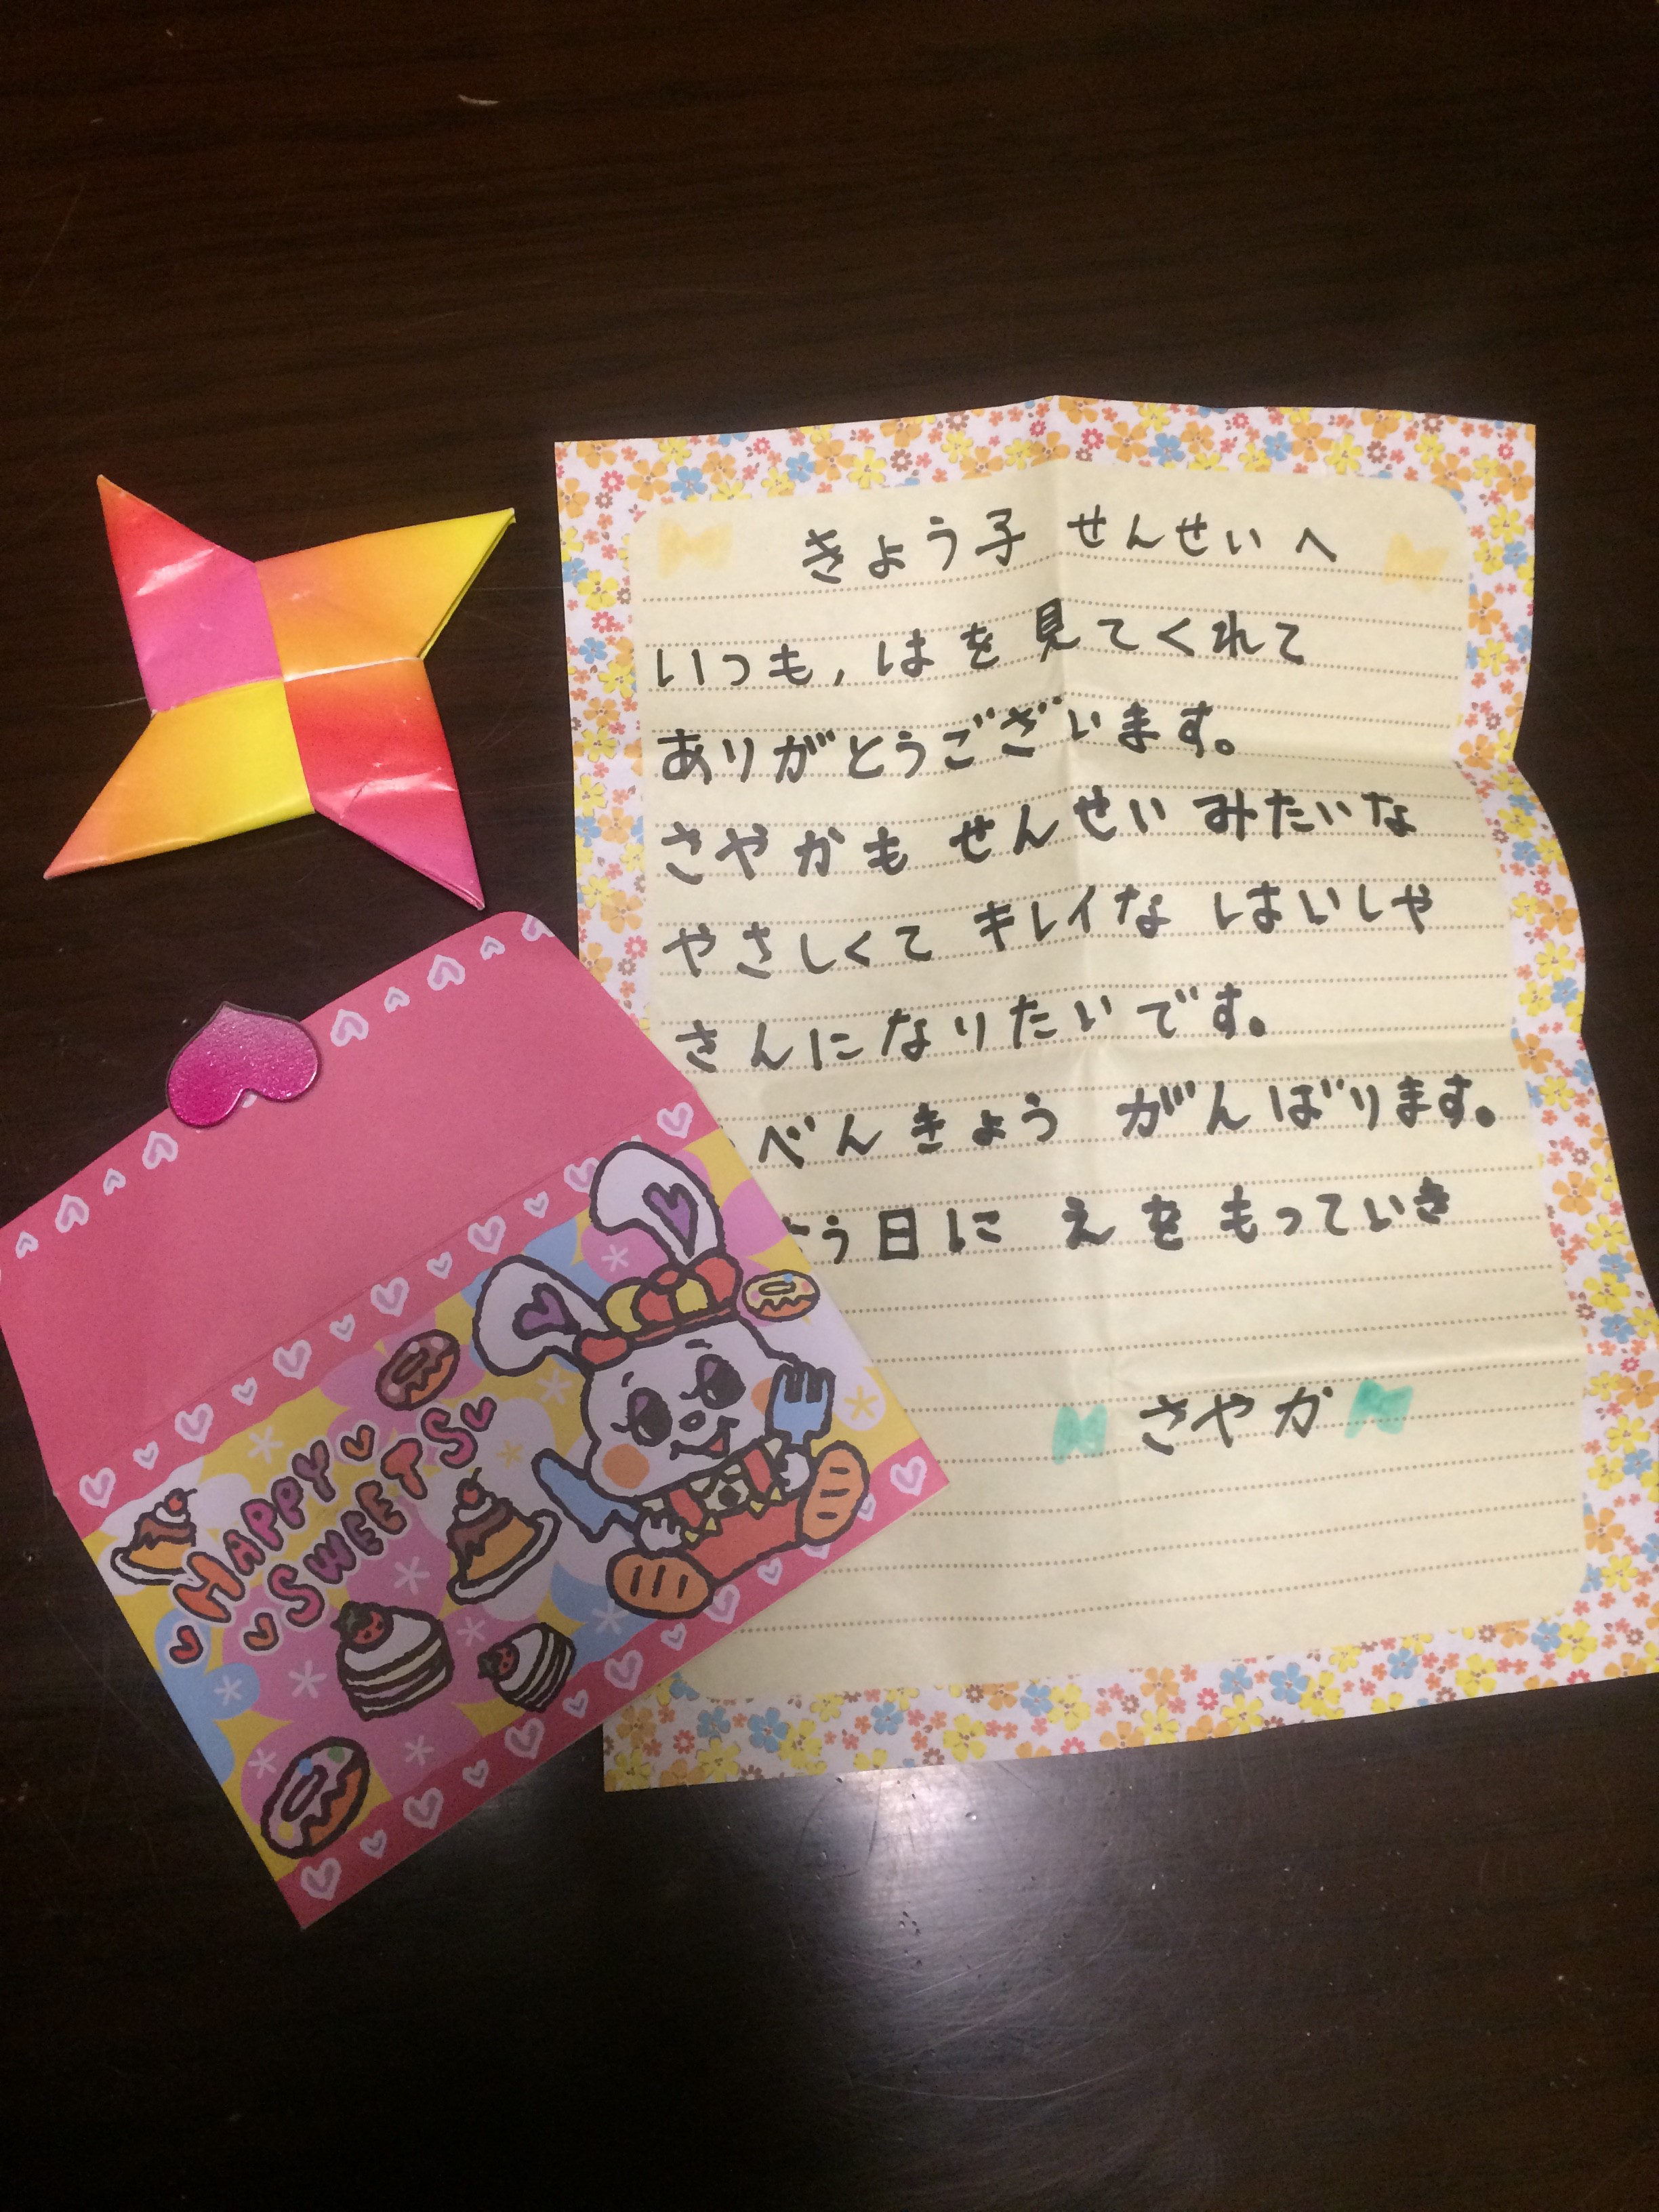 きょう子 せんせいへ
いつも,はを見てくれて
ありがとうございます。
さやかも せんせい みたいな
やさしくて キレイな はいしゃ
さんになりたいです。
べんきょう がんばります。
う日に えをもっていき
さやか
HAPPY
SWEETS